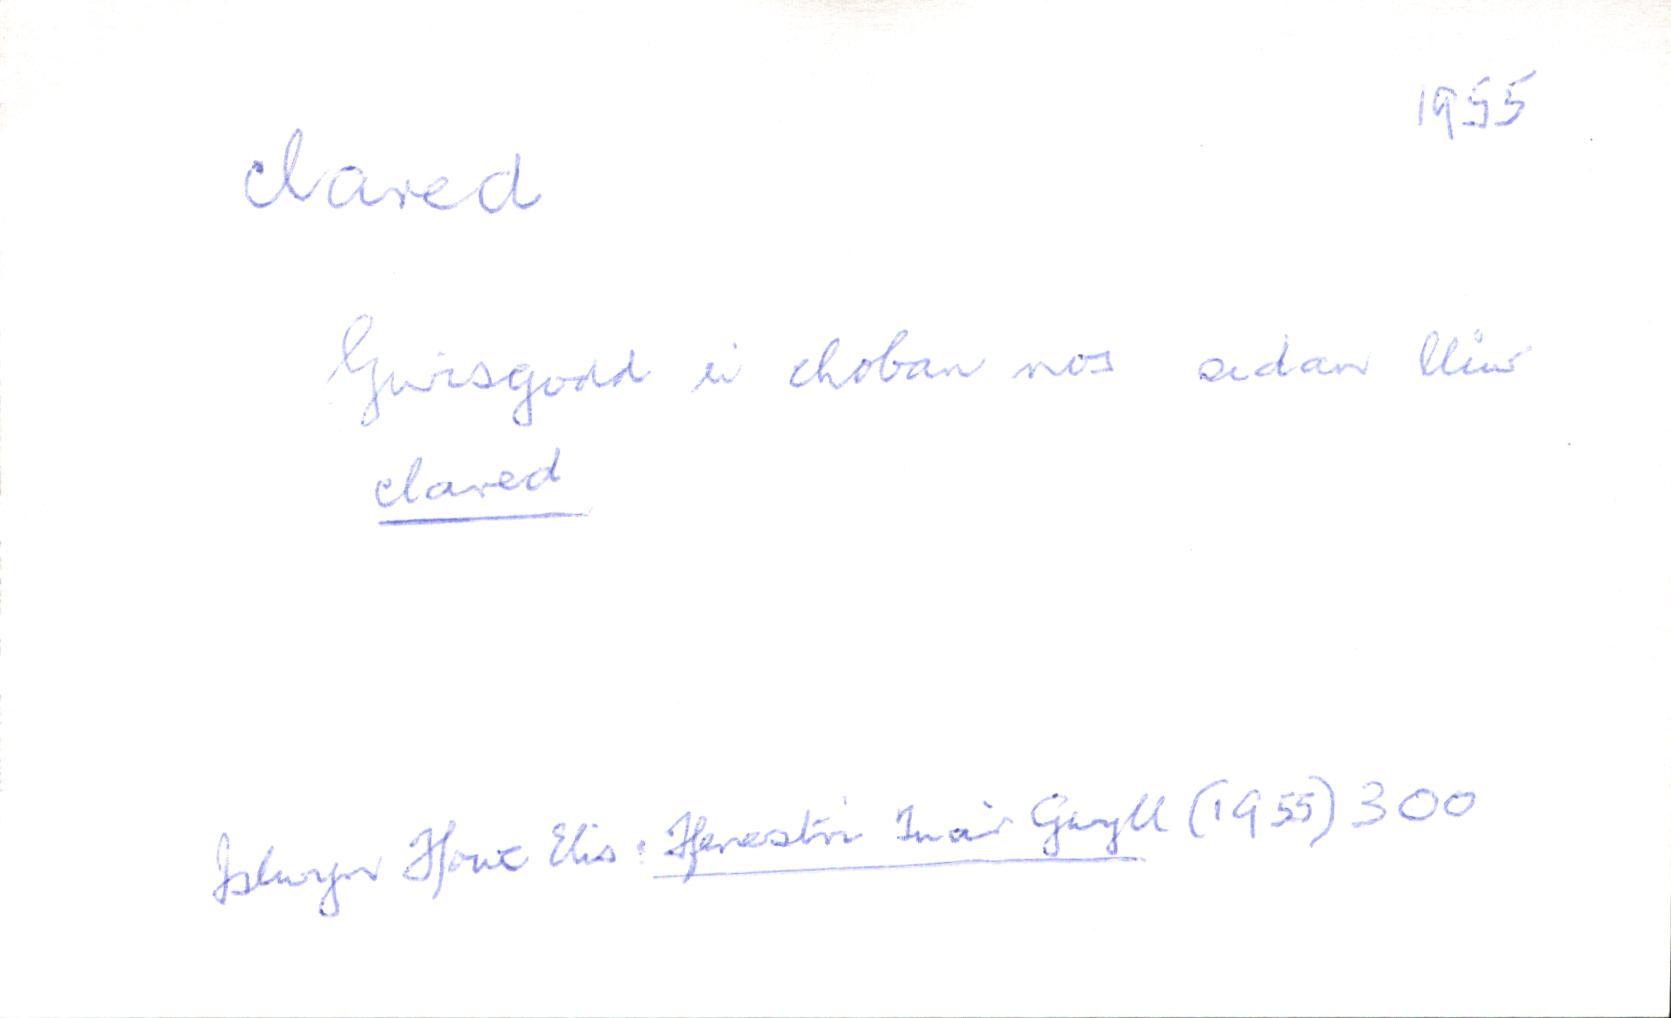 1955
clared
Gwisgodd ei choban nos sidan lliw
clared
Islwyn Ffowc Elis: Ffenestri Tua'r Gwyll (1955) 300